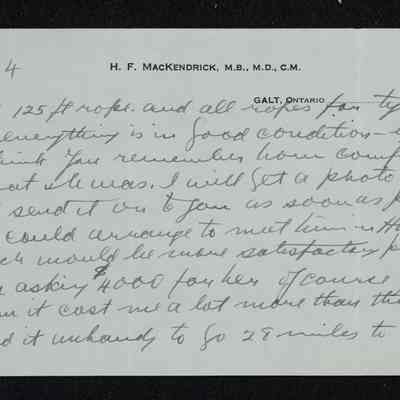 4
H. F. MACKENDRICK, M.B., M.D., C.M.
GALT, ONTARIO
125 ft rope. and all ropes for ty
everything is in good condition -
think you remember how comf
at she was. I will get a photo
send it on to you as soon as p
could arrange to meet him in H
ch would be more satisfactory p
asking $4000 for her of course
it cost me a lot more than th
d it unhandy to go 28 miles to